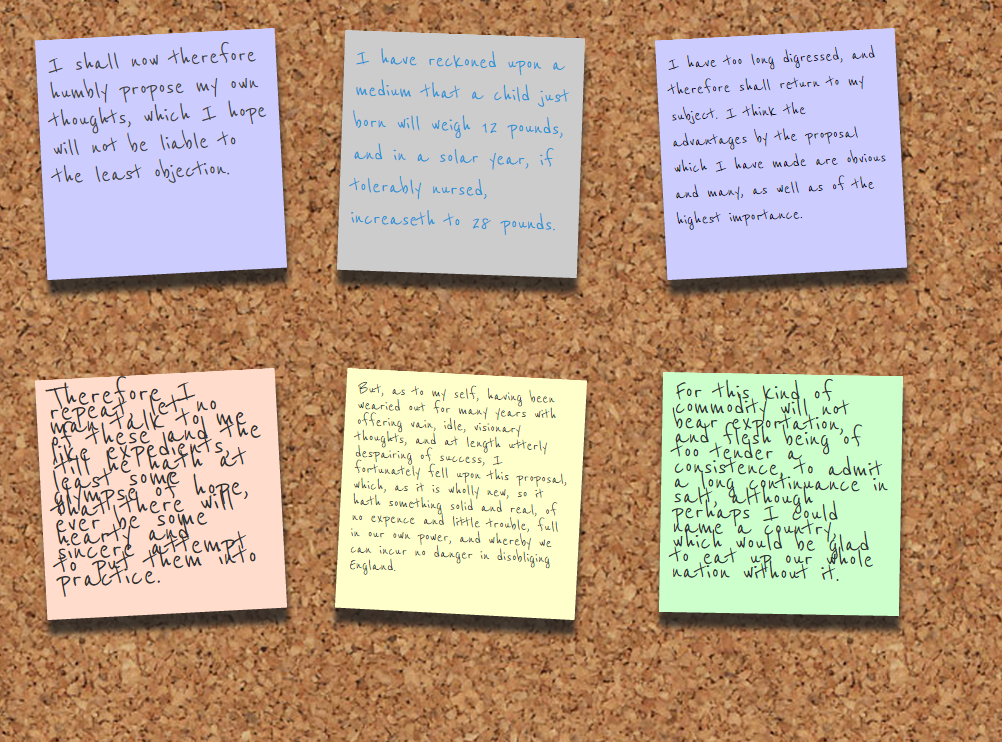 I shall now therefore
humbly propose my own
thoughts, which I hope
will not be liable to
the least objection.
I have reckoned upon a
medium that a child just
born will weigh 12 pounds,
and in a solar year, if
tolerably nursed,
increaseth to 28 pounds.
I have too long digressed, and
therefore shall return to my
subject. I think the
advantages by the proposal
which I have made are obvious
and many, as well as of the
highest importance.
Therefore I
repeat, let no
man talk to me
of these and the
like expedients,
till he hath at
least some
glimpse of hope,
that there will
ever be some
hearty and
sincere attempt
to put them into
practice.
But, as to my self, having been
wearied out for many years with
offering vain, idle, visionary
thoughts, and at length utterly
despairing of success, I
fortunately fell upon this proposal,
which, as it is wholly new, so it
hath something solid and real, of
no expence and little trouble, full
in our own power, and whereby we
can incur no danger in disobliging
England.
For this kind of
commodity will not
bear exportation,
and flesh being of
too tender a
consistence, to admit
a long continuance in
salt, although
perhaps I could
name a country,
which would be glad
to eat up our whole
nation without it.